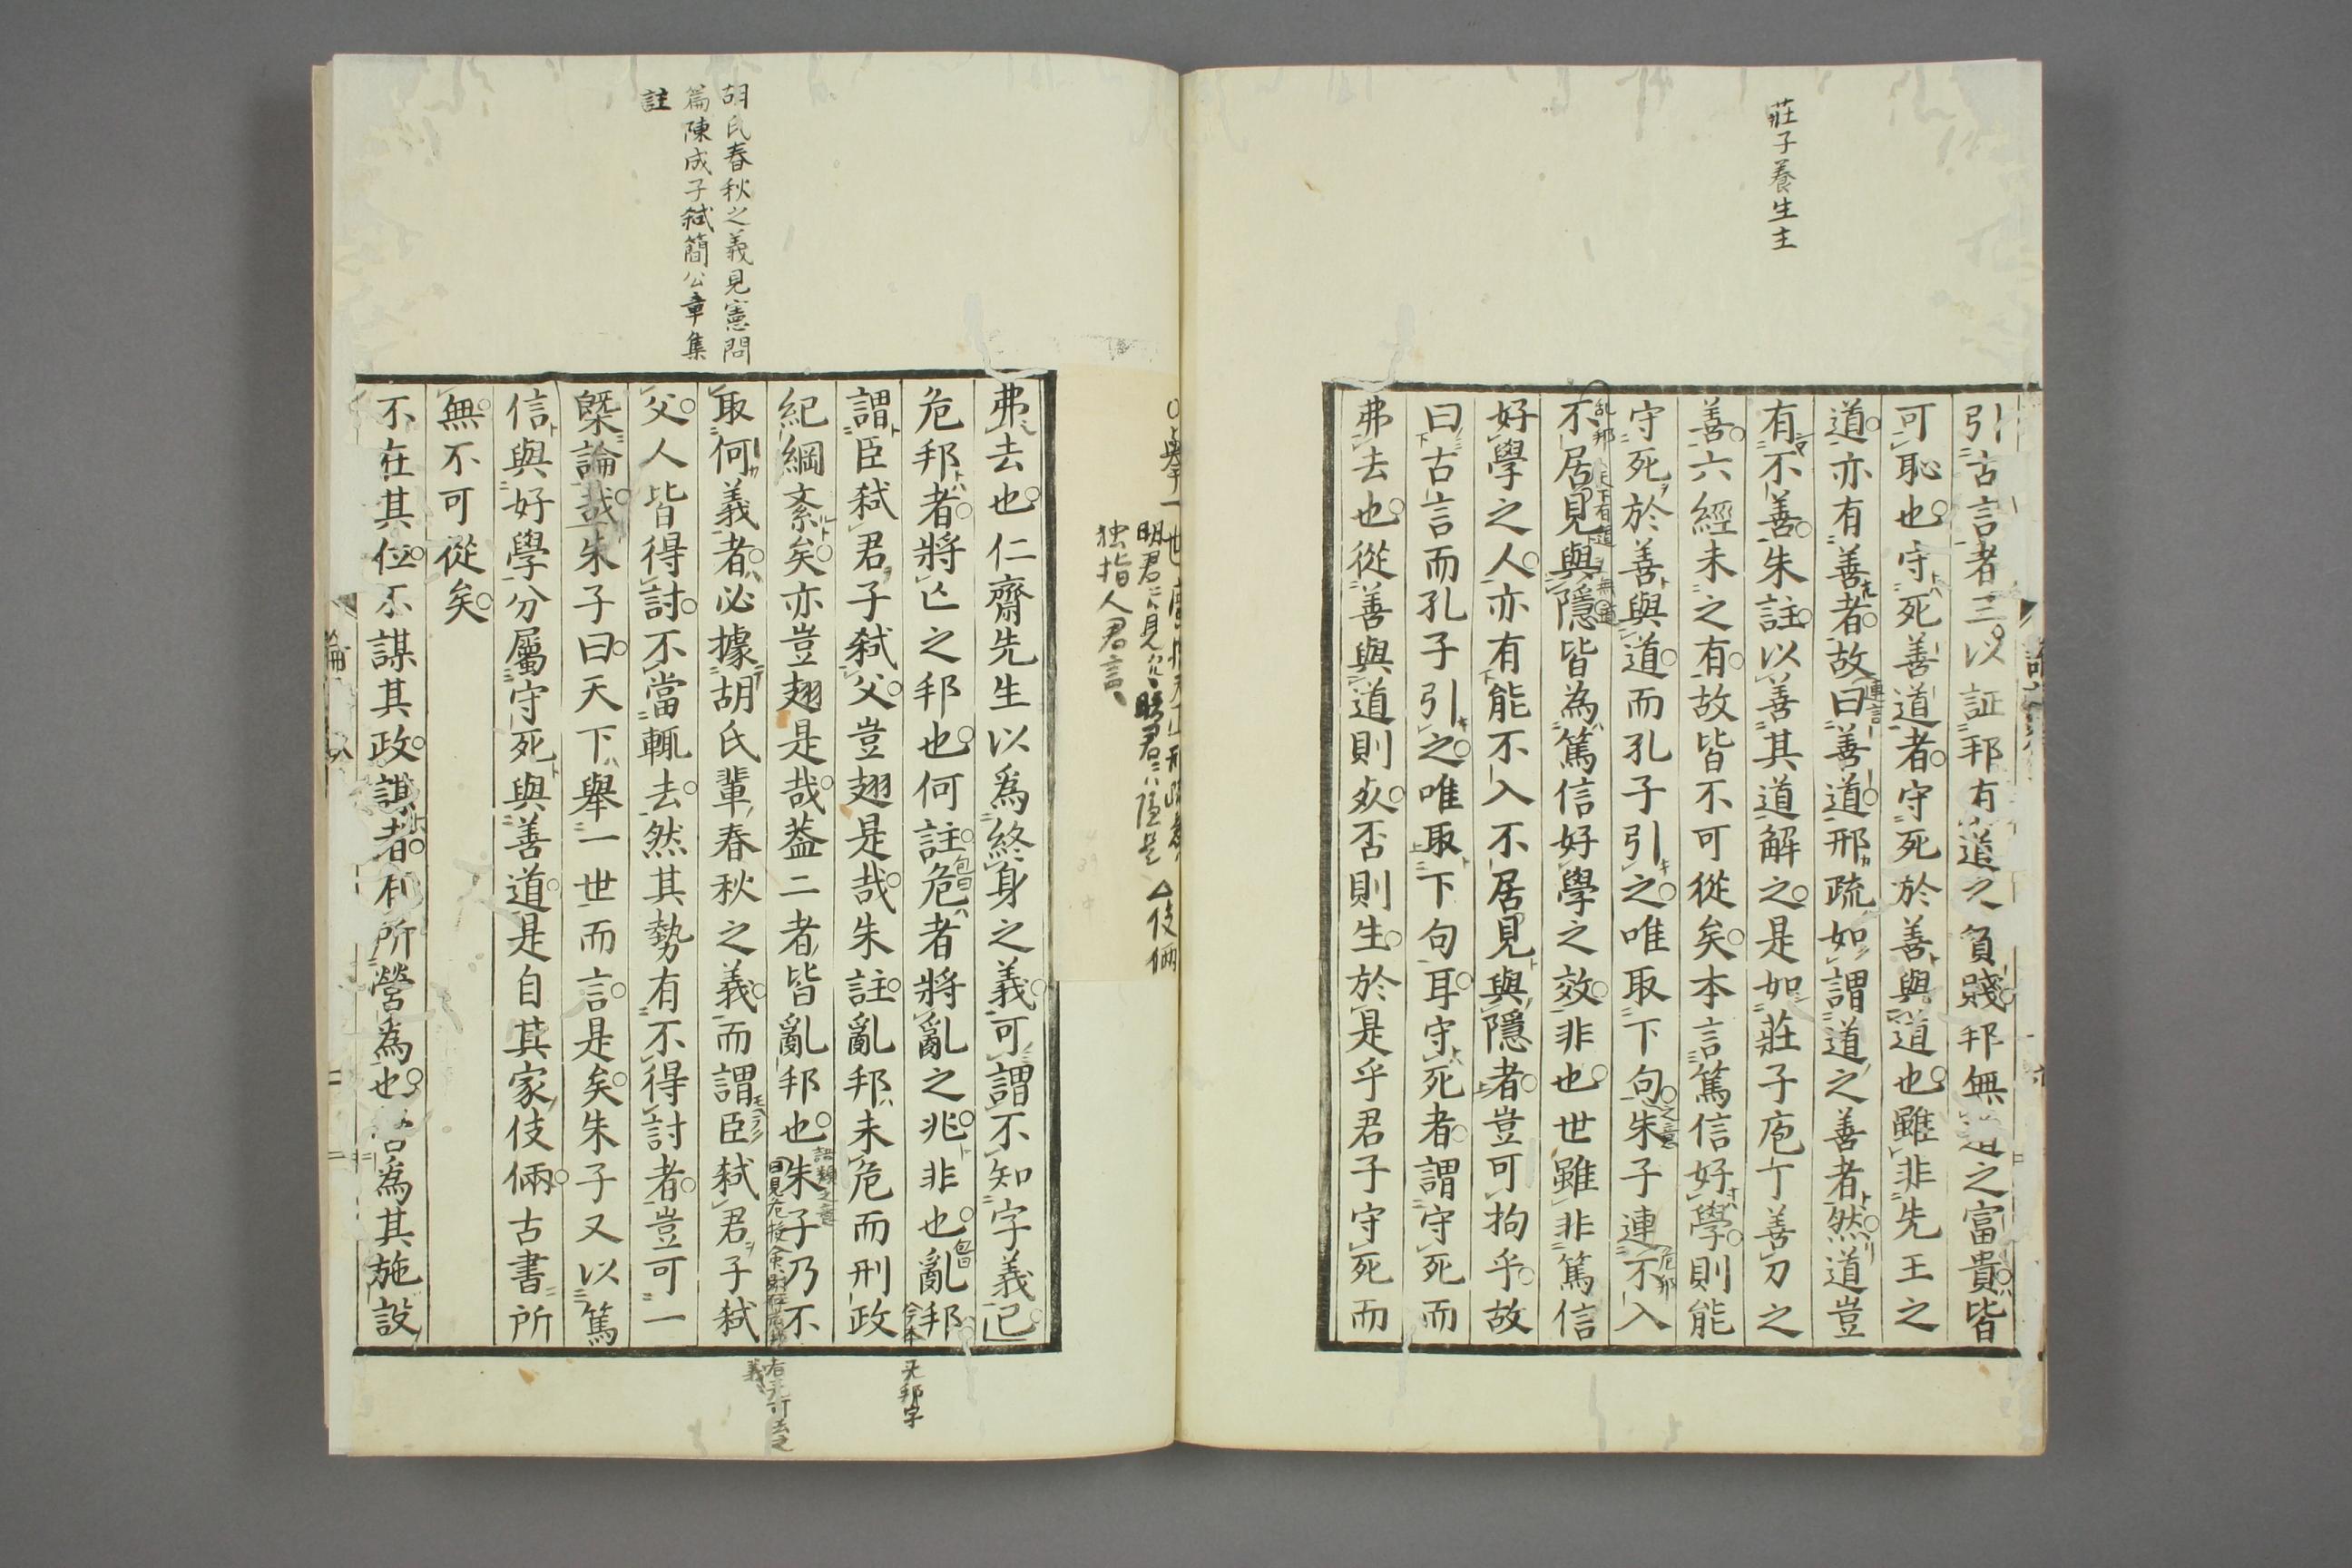 莊子養生主
引古言者三以証邦有道之貧賤邦無道之富貴皆
可恥也守死善道者守死於善與道也雖非先王之
道亦有善者故曰善道邢疏如謂道之善者然道豈
有不善朱註以善其道解之是如莊子庖丁善刀之
善六經未之有故皆不可從矣本言篤信好學則能
守死於善與道而孔子引之唯取下句朱子連不入
不居見與隱皆為篤信好學之效非也世雖非篤信
好學之人亦有能不入不居見與隱者豈可拘乎故
曰古言而孔子引之唯取下句耳守死者謂守死而
弗去也從善與道則死否則生於是乎君子守死而
胡氏春秋之義見憲問
篇陳成子弑簡公章集
註
独指人君言
△伎倆
弗去也仁齋先生以為終身之義可謂不知字義已
危邦者將亡之邦也何註危者將亂之兆非也亂邦
謂臣弑君子弑父豈翅是哉朱註亂邦未危而刑政
紀綱紊矣亦豈翅是哉蓋二者皆亂邦也朱子乃不
取何義者必據胡氏輩春秋之義而謂臣弑君子弑
父人皆得討不當輒去然其勢有不得討者豈可一
槩論哉朱子曰天下舉一世而言是矣朱子又以篤
信與好學分屬守死與善道是自其家伎倆古書所
無不可從矣
不在其位不謀其政謀者利所營為也營為其施設
包曰
包曰
今本无邦字